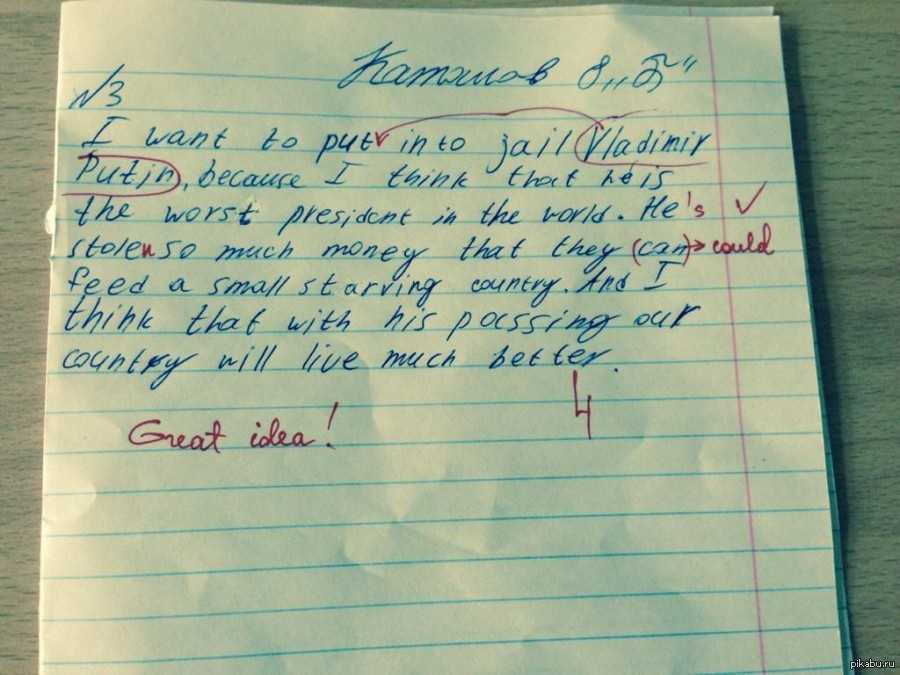 8 „Б"
№3
I want to put into jail Vladimir
Putin, because I think that he is
the worst president in the world. He's
stolen so much money that they (can) → could
feed a small starving country. And I
think that with his pocssing our
country will live much better.
4
Great idea!
pikabu.ru